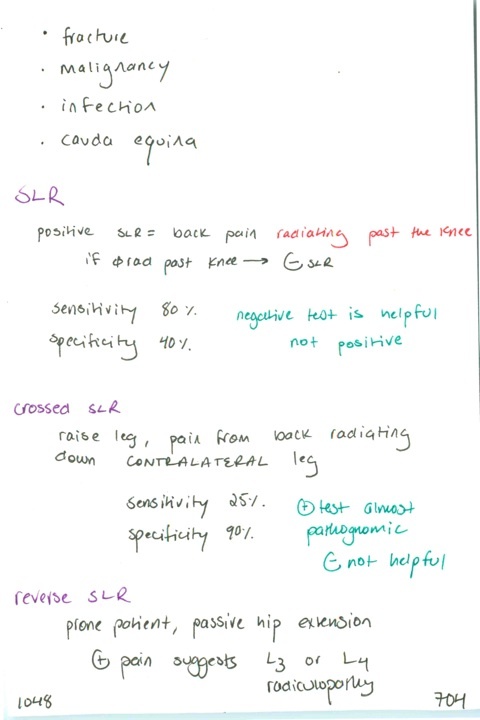 • fracture
• malignancy
• infection
• cauda equina
SLR
positive SLR = back pain radiating past the knee
if φ rad past knee → ⊖ SLR
sensitivity 80%. negative test is helpful
specificity 40%. not positive
crossed SLR
raise leg, pain from back radiating
down CONTRALATERAL leg
sensitivity 25%. ⊕ test almost
specificity 90%. pathognomic
⊖ not helpful
reverse SLR
prone patient, passive hip extension
⊕ pain suggests L3 or L4
radiculopathy
1048 704